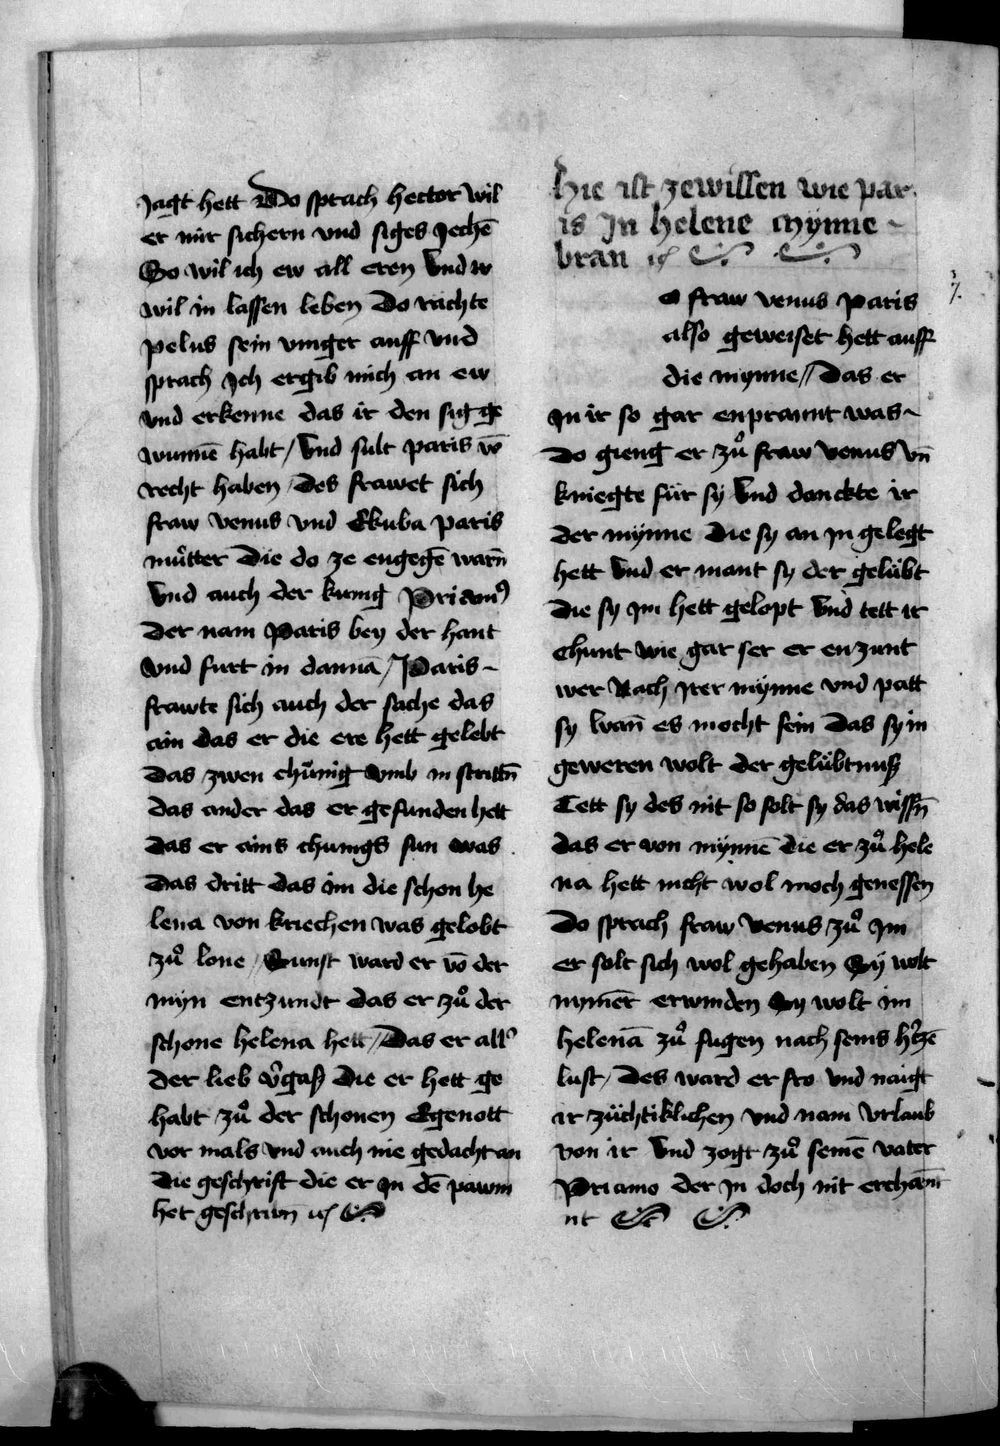 Jagt hett Do sprach hector wil
er mir sichern vnd siges Jechē
So wil ich ew all eren Vnd w
wil in lassen leben Do rachte
pelus sein vinger auff vnd
sprach Ich ergib mich an ew
vnd erkenne das ir den sig ge
wunnē habt / Vnd sult paris vō
recht haben / des frawet sich
fraw venus vnd Ekuba paris
mutter die do ze engegē warn̄
Vnd auch der kunig Priamꝰ
der nam Paris bey der hant
Vnd furt in dannā / Paris
frawte sich auch der sache das
ain das er die ere hett gelebt
das zwen chünig vmb in strittn̄
das ander das er gefunden hett
das er ains chunigs sun was
das dritt das im die schon he
lena von kriechen was gelobt
zů lone / Sunst ward er vō der
myn entzundt das er zů der
schone helena hett / Das er all
der lieb v̄gaß die er hett ge
habt zů der schonen Egenott
vor mals vnd auch nie gedacht an
die geschrift die er In dē pawm
het geschriwn
Hie ist zewissen wie par
is In helene mynne
bran
o fraw venus paris
also geweiset hett auff
die mynne / Das er
In ir so gar enprannt was
do gieng er zů fraw venus vn̄
kniegte für sy Vnd danckte ir
der mynne die sy an In gelegt
hett Vnd er mant sy der gelübt
die sy Im hett gelopt Vnd tett ir
chunt wie gar ser er enzunt
wer Nach Irer mynne vnd patt
sy wan̄ es mocht sein das sy in
geweren wolt der gelübtnuß
Tett sy des nit so solt sy das wissn̄
das er von mynnē die er zů hele
na hett nicht wol moch genessen
do sprach fraw venus zů Im
er solt sich wol gehaben Sy wolt
nymer erwinden Sy wolt im
helenā zů fugen nach seins hꝛzē
lust / des ward er fro vnd naigt
ir züchtiklichen vnd nam vrlaub
von ir Vnd zogt zů seinē vater
Priamo der In doch nit erchan̄
nt